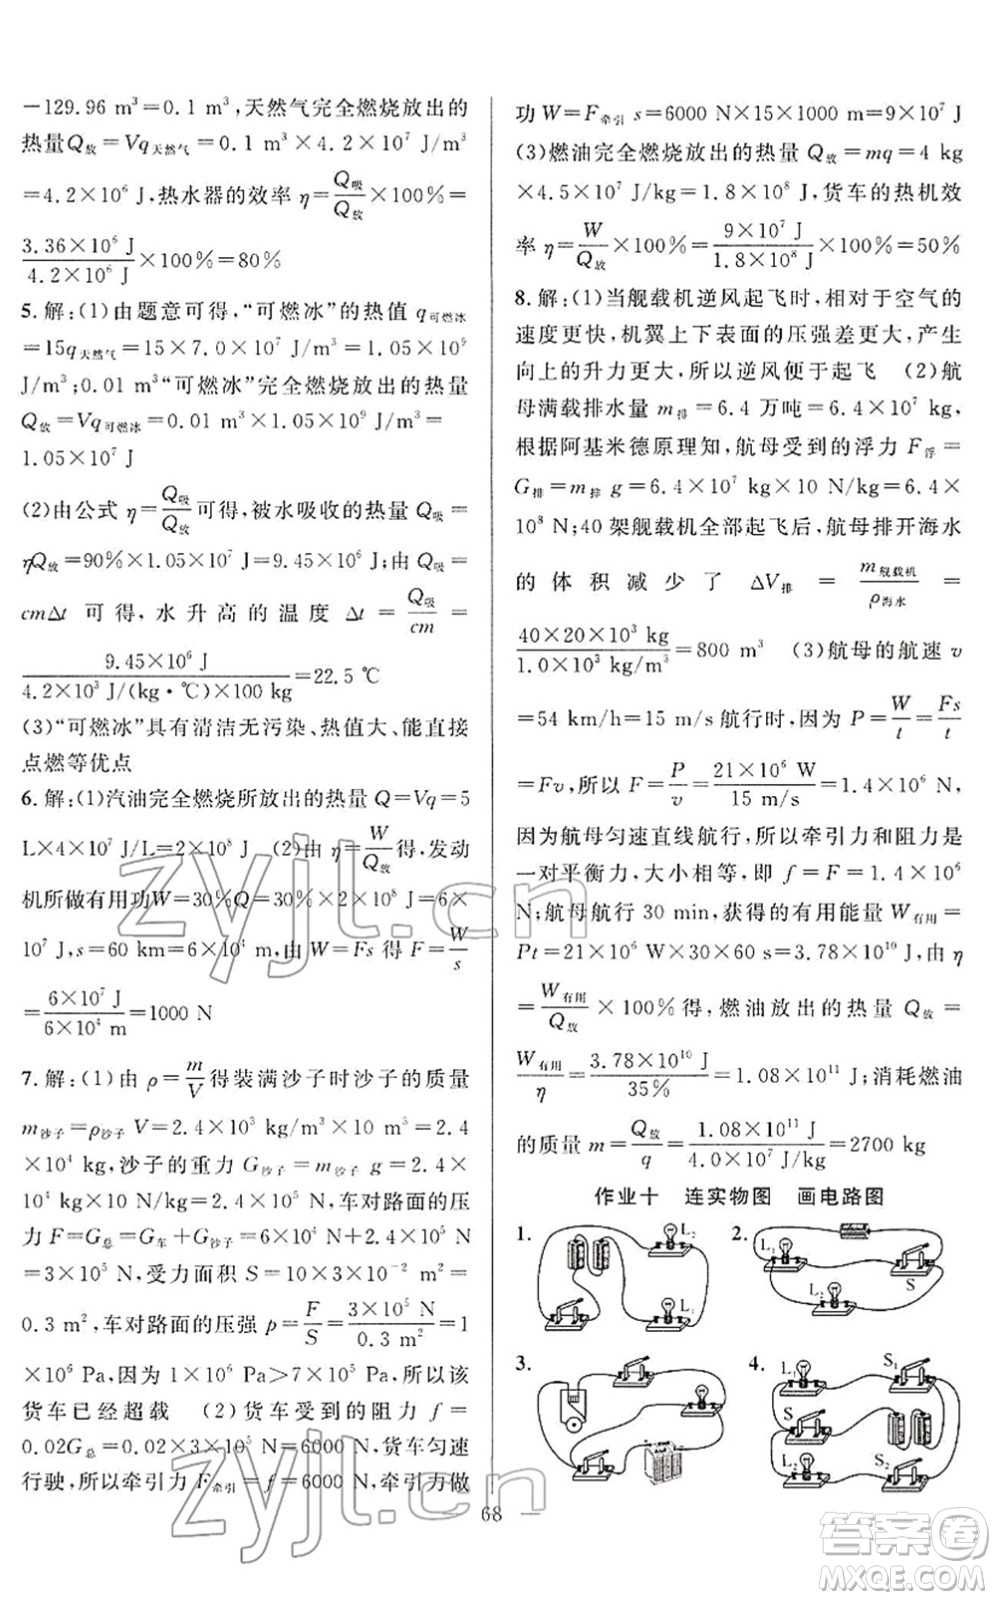 -129.96 m³=0.1 m³,天然气完全燃烧放出的
热量Q放=Vq天然气=0.1 m³×4.2×10⁷ J/m³
=4.2×10⁶ J,热水器的效率 η=Q吸/Q放×100%=
3.36×10⁶ J/4.2×10⁶ J×100%=80%
5.解:(1)由题意可得,“可燃冰”的热值 q可燃冰
=15q天然气=15×7.0×10⁷ J/m³=1.05×10⁹
J/m³;0.01 m³“可燃冰”完全燃烧放出的热量
Q放=Vq可燃冰=0.01 m³×1.05×10⁹ J/m³=
1.05×10⁷ J
(2)由公式 η=Q吸/Q放可得,被水吸收的热量 Q吸=
ηQ放=90%×1.05×10⁷ J=9.45×10⁶ J;由 Q吸=
cmΔt 可得,水升高的温度 Δt=Q吸/cm=
9.45×10⁶ J/4.2×10³ J/(kg·℃)×100 kg=22.5 ℃
(3)“可燃冰”具有清洁无污染、热值大、能直接
点燃等优点
6.解:(1)汽油完全燃烧所放出的热量 Q=Vq=5
L×4×10⁷ J/L=2×10⁸ J (2)由η=W/Q放得,发动
机所做有用功W=30%Q=30%×2×10⁸ J=6×
10⁷ J,s=60 km=6×10⁴ m,由 W=Fs 得 F=W/s
=6×10⁷ J/6×10⁴ m=1000 N
7.解:(1)由 ρ=m/V得装满沙子时沙子的质量
m沙子=ρ沙子 V=2.4×10³ kg/m³×10 m³=2.4
×10⁴ kg,沙子的重力 G沙子=m沙子 g=2.4×
10⁴ kg×10 N/kg=2.4×10⁵ N,车对路面的压
力 F=G总=G车+G沙子=6×10⁴ N+2.4×10⁵ N
=3×10⁵ N,受力面积 S=10×3×10⁻² m²=
0.3 m²,车对路面的压强 p=F/S=3×10⁵ N/0.3 m²=1
×10⁶ Pa,因为 1×10⁶ Pa>7×10⁵ Pa,所以该
货车已经超载 (2)货车受到的阻力 f=
0.02G总=0.02×3×10⁵ N=6000 N,货车匀速
行驶,所以牵引力 F牵引=f=6000 N,牵引力做
功 W=F牵引 s=6000 N×15×1000 m=9×10⁷ J
(3)燃油完全燃烧放出的热量 Q放=mq=4 kg
×4.5×10⁷ J/kg=1.8×10⁸ J,货车的热机效
率 η=W/Q放×100%=9×10⁷ J/1.8×10⁸ J×100%=50%
8.解:(1)当舰载机逆风起飞时,相对于空气的
速度更快,机翼上下表面的压强差更大,产生
向上的升力更大,所以逆风便于起飞 (2)航
母满载排水量 m排=6.4 万吨=6.4×10⁷ kg,
根据阿基米德原理知,航母受到的浮力 F浮=
G排=m排 g=6.4×10⁷ kg×10 N/kg=6.4×
10⁸ N;40 架舰载机全部起飞后,航母排开海水
的体积减少了 ΔV排=m舰载机/ρ海水=
40×20×10³ kg/1.0×10³ kg/m³=800 m³ (3)航母的航速 v
=54 km/h=15 m/s航行时,因为 P=W/t=Fs/t
=Fv,所以 F=P/v=21×10⁶ W/15 m/s=1.4×10⁶ N,
因为航母匀速直线航行,所以牵引力和阻力是
一对平衡力,大小相等,即 f=F=1.4×10⁶
N;航母航行 30 min,获得的有用能量 W有用=
Pt=21×10⁶ W×30×60 s=3.78×10¹⁰ J,由 η
=W有用/Q放×100%得,燃油放出的热量 Q放=
W有用/η=3.78×10¹⁰ J/35%=1.08×10¹¹ J;消耗燃油
的质量 m=Q放/q=1.08×10¹¹ J/4.0×10⁷ J/kg=2700 kg
作业十 连实物图 画电路图
1.
L₂
L₁
2.
L₁
L₂
S
3.
4.
L₁
S₁
S
L₂
S₂
68
zyjl.cn
zyjl.cn
答案卷
MXQE.COM